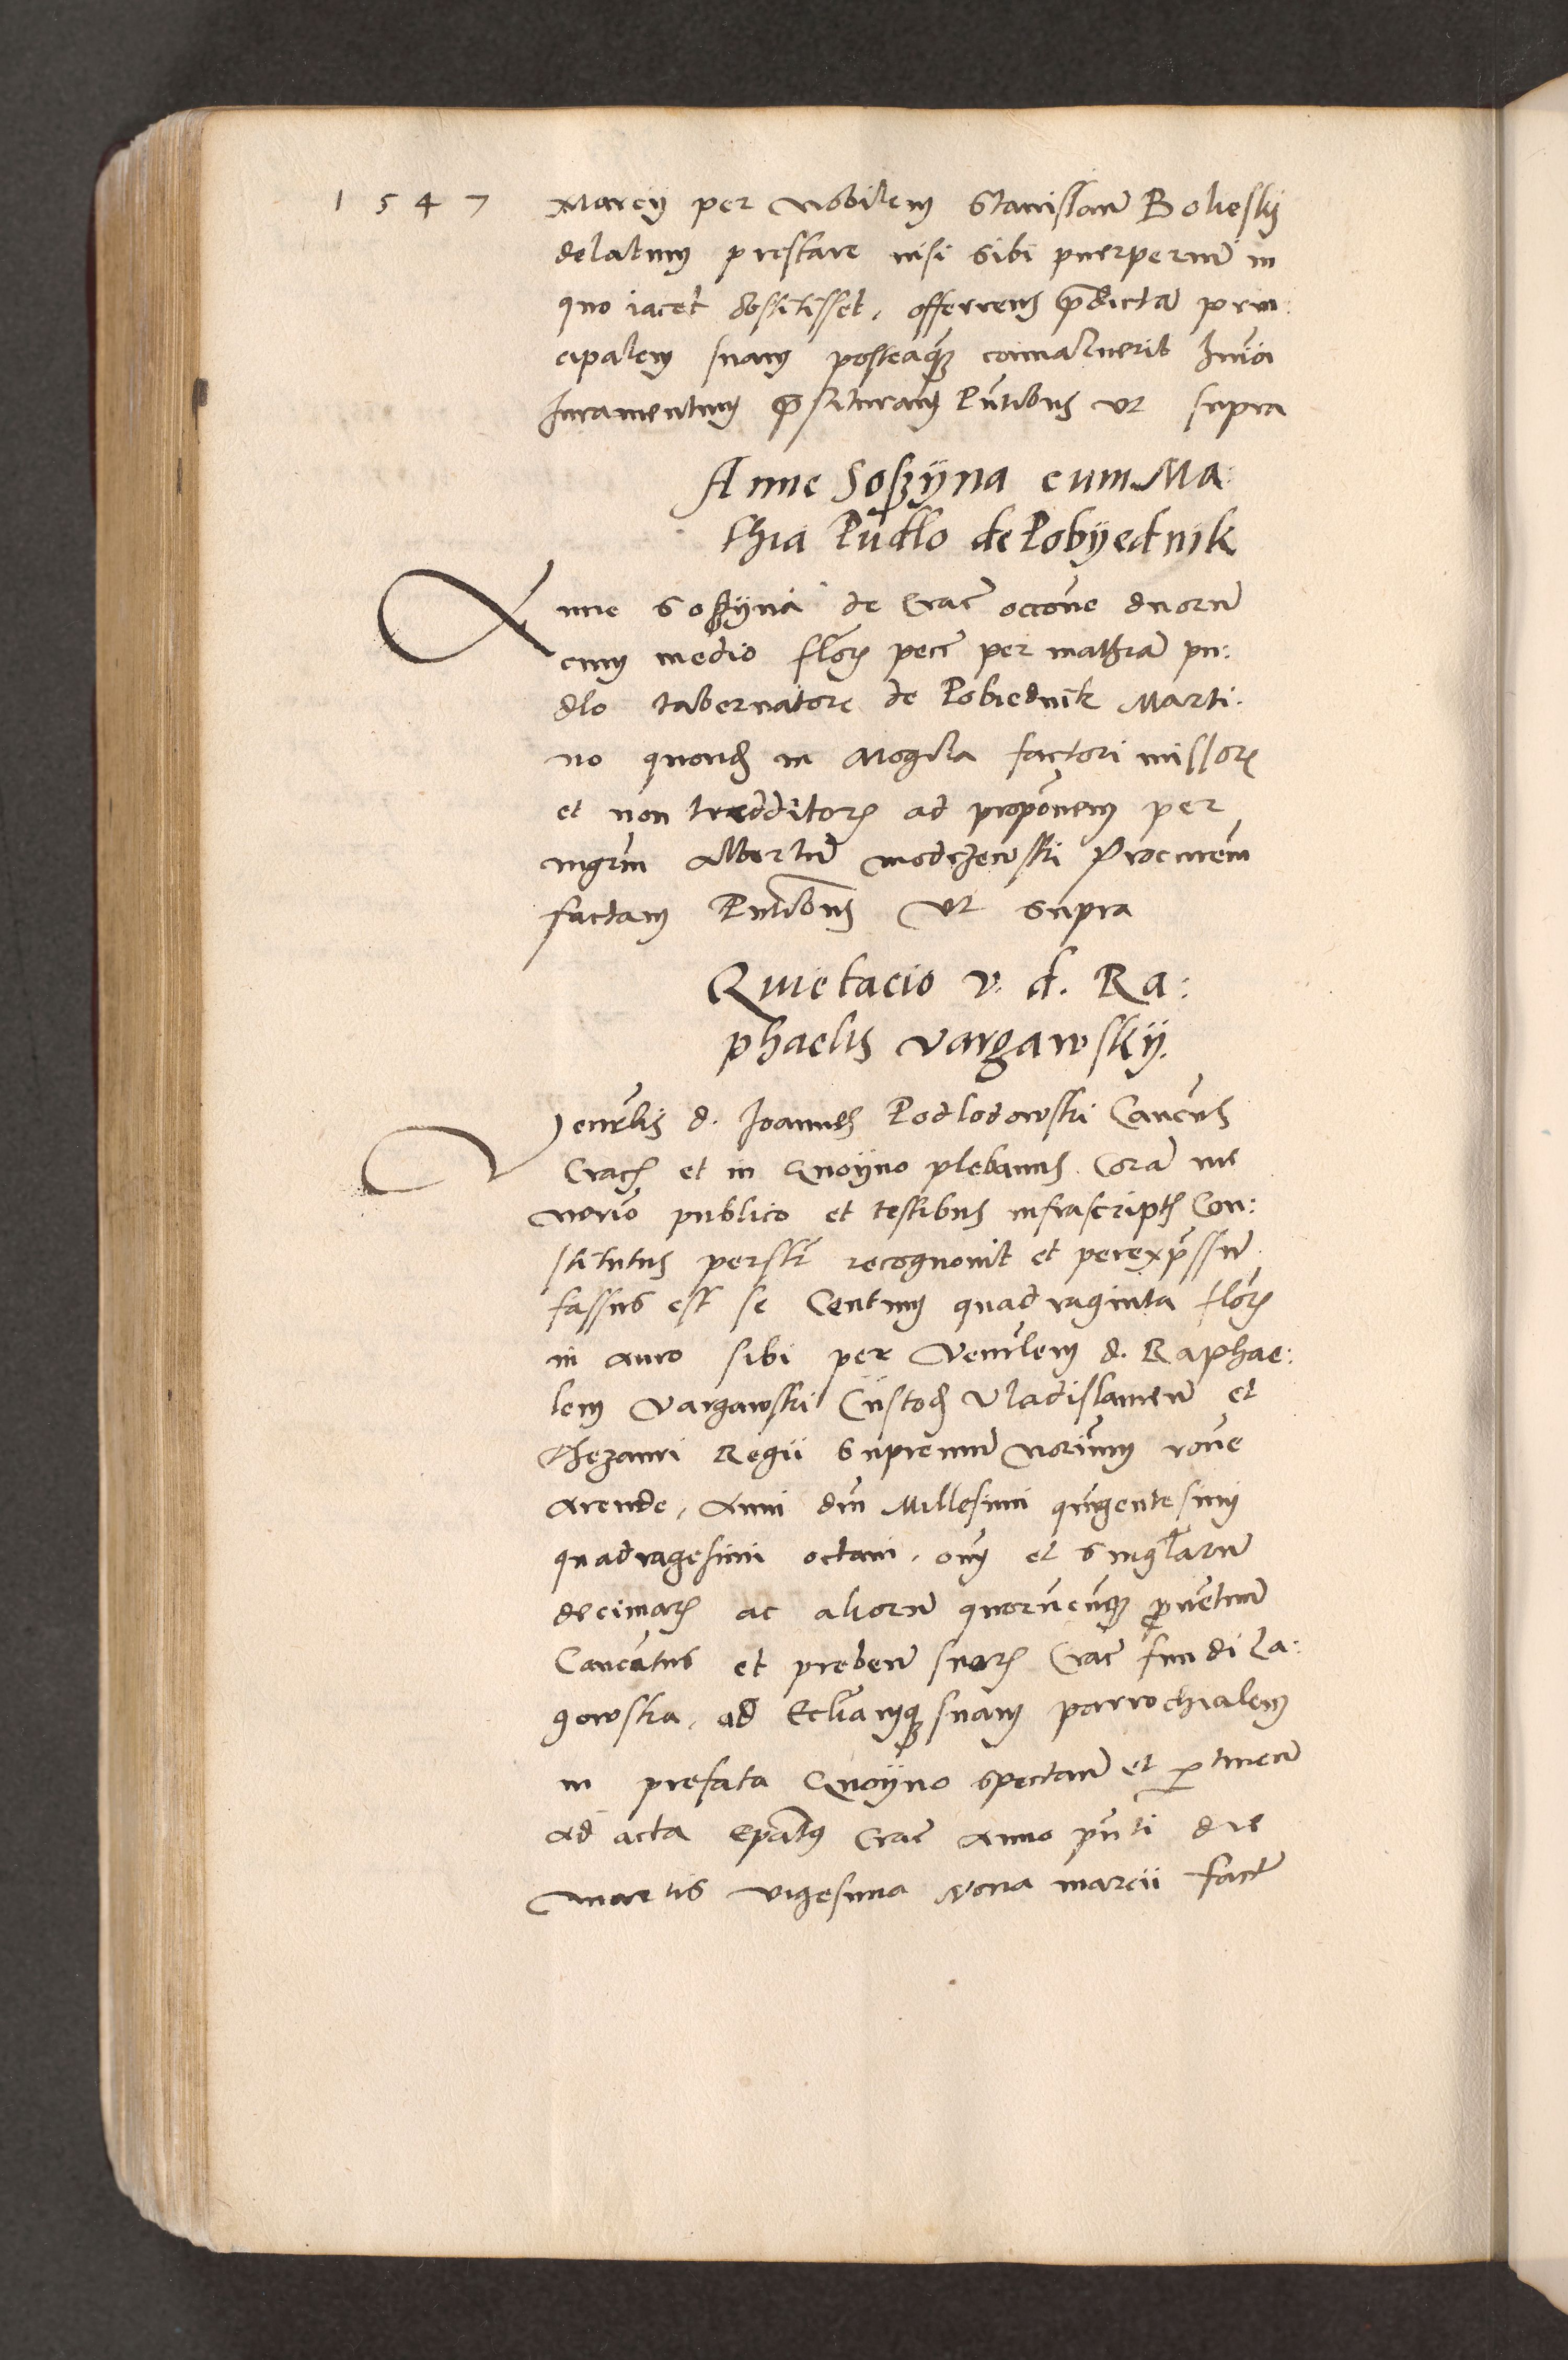 1547
Marcij per Nobilem Stanislaum Bolieskij
delatum prestare nisi sibi puerperium in
quo iacet obstitisset, offerens p̄dictam prin:
cipalem suam posteaq̃ conualuerit h̄mōi
Iuramentum p̄stituram Pn̄tibus vt supra
Anne Soßÿna cum Ma:
thia Pudlo de Pobÿednÿk
Anne Soßÿna de Crac̄ occōne duorum
cum medio flōr pecc̄ per mathiam pu:
dlo tabernatore de Pobiednik Marti:
no quond̄ in Mogila factori missor̄
et non tredditor̄ ad propōnem per
mgr̄m Albertum modrzewski Procur̄em
factam Pn̄tibus vt supra
Quietacio v. d. Ra:
phaelis vargawskÿ.
Venr̄lis d. Joannes Podlodowski Can̄cus
Crac̄ et in Gnoÿno plebanus Coram me
Nor̄io publico et testibus infrascript̄ Con:
stitutus person̄r recognouit et per exp̄ssum
fassus est se Centum quadraginta flōr
in auro sibi per Venr̄lem d. Raphae:
lem Vargawski Custod̄ Vladislauien̄ et
Thezauri Regii Supremum Nor̄ium rōne
Arende, Anni dn̄i Millesimi quīngentesimi
quadragesimi octaui, om̄ et singl̄arum
decimar̄ ac aliorum quorumcūnq̃ prouentuum
Can̄catus et preben̄ suar̄ Crac̄ fundi La:
gowska, ad Ecl̄iamq̃ suam parrochialem
in prefata Gnoÿno spectan̄ et p̱tinen̄
ad acta Ep̄atus Crac̄ Anno pn̄ti die
martis vigesima Nona marcii fact̄